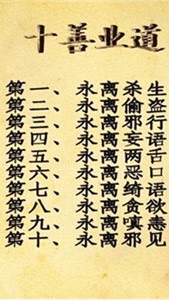 十善业道
第一、永离杀生
第二、永离偷盗
第三、永离邪行
第四、永离妄语
第五、永离两舌
第六、永离恶口
第七、永离绮语
第八、永离贪欲
第九、永离嗔恚
第十、永离邪见